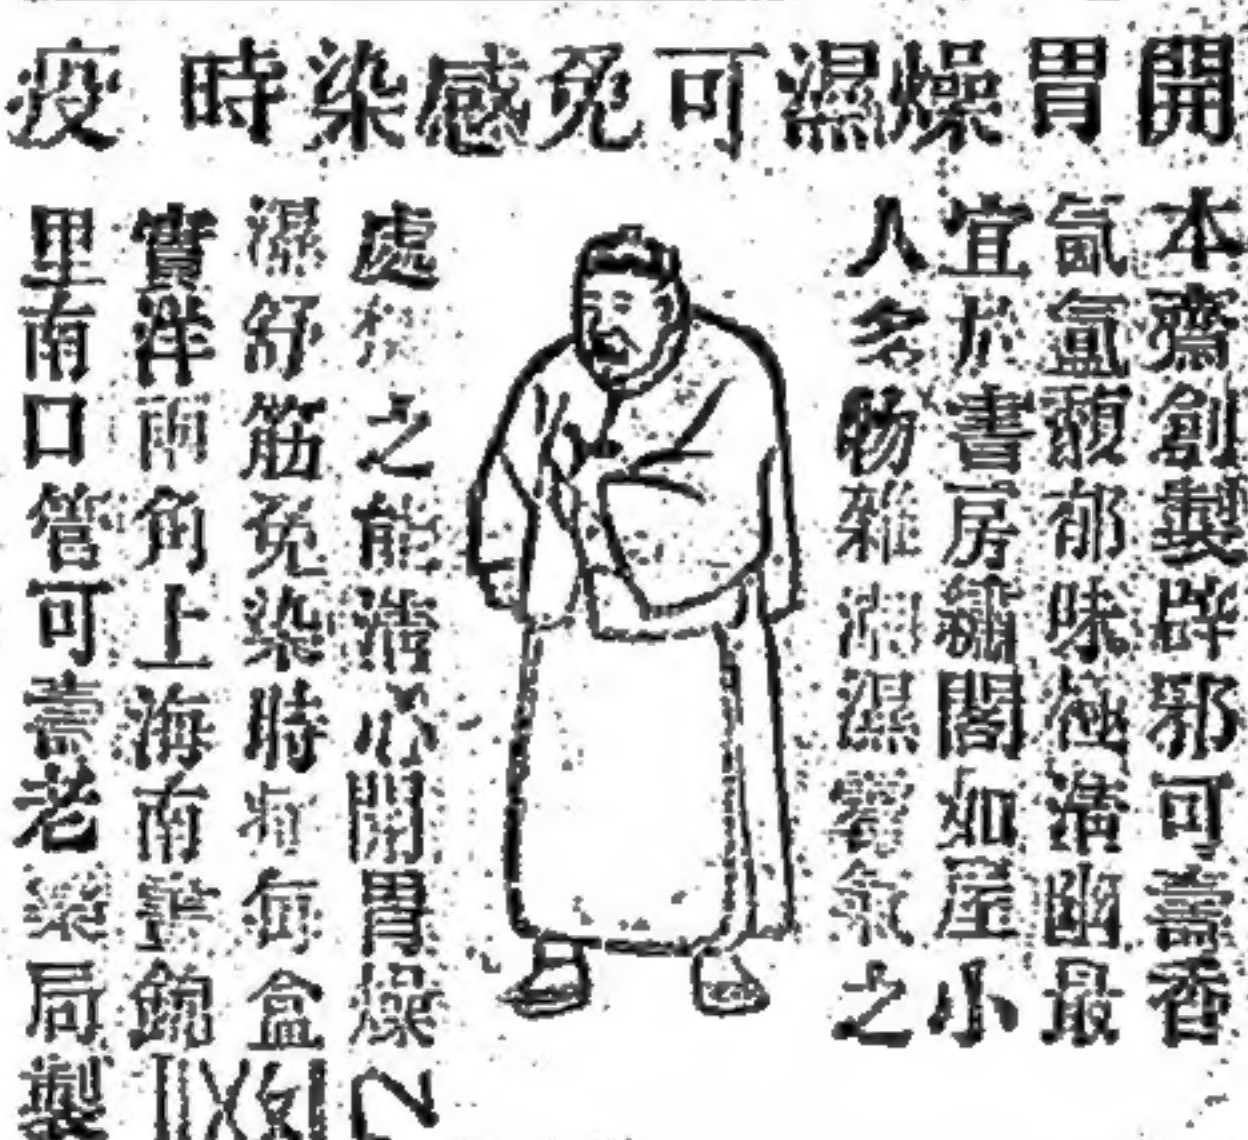 開胃燥濕可免感染時疫
本齋創製辟邪可壽香
氤氳馥郁味極清幽最
宜於書房繡閣如屋小
人多物雜潮濕霉氣之
處焚之能清心開胃燥
濕舒筋免染時每盒
實洋兩角上海南錦
里南口管可壽老藥局製